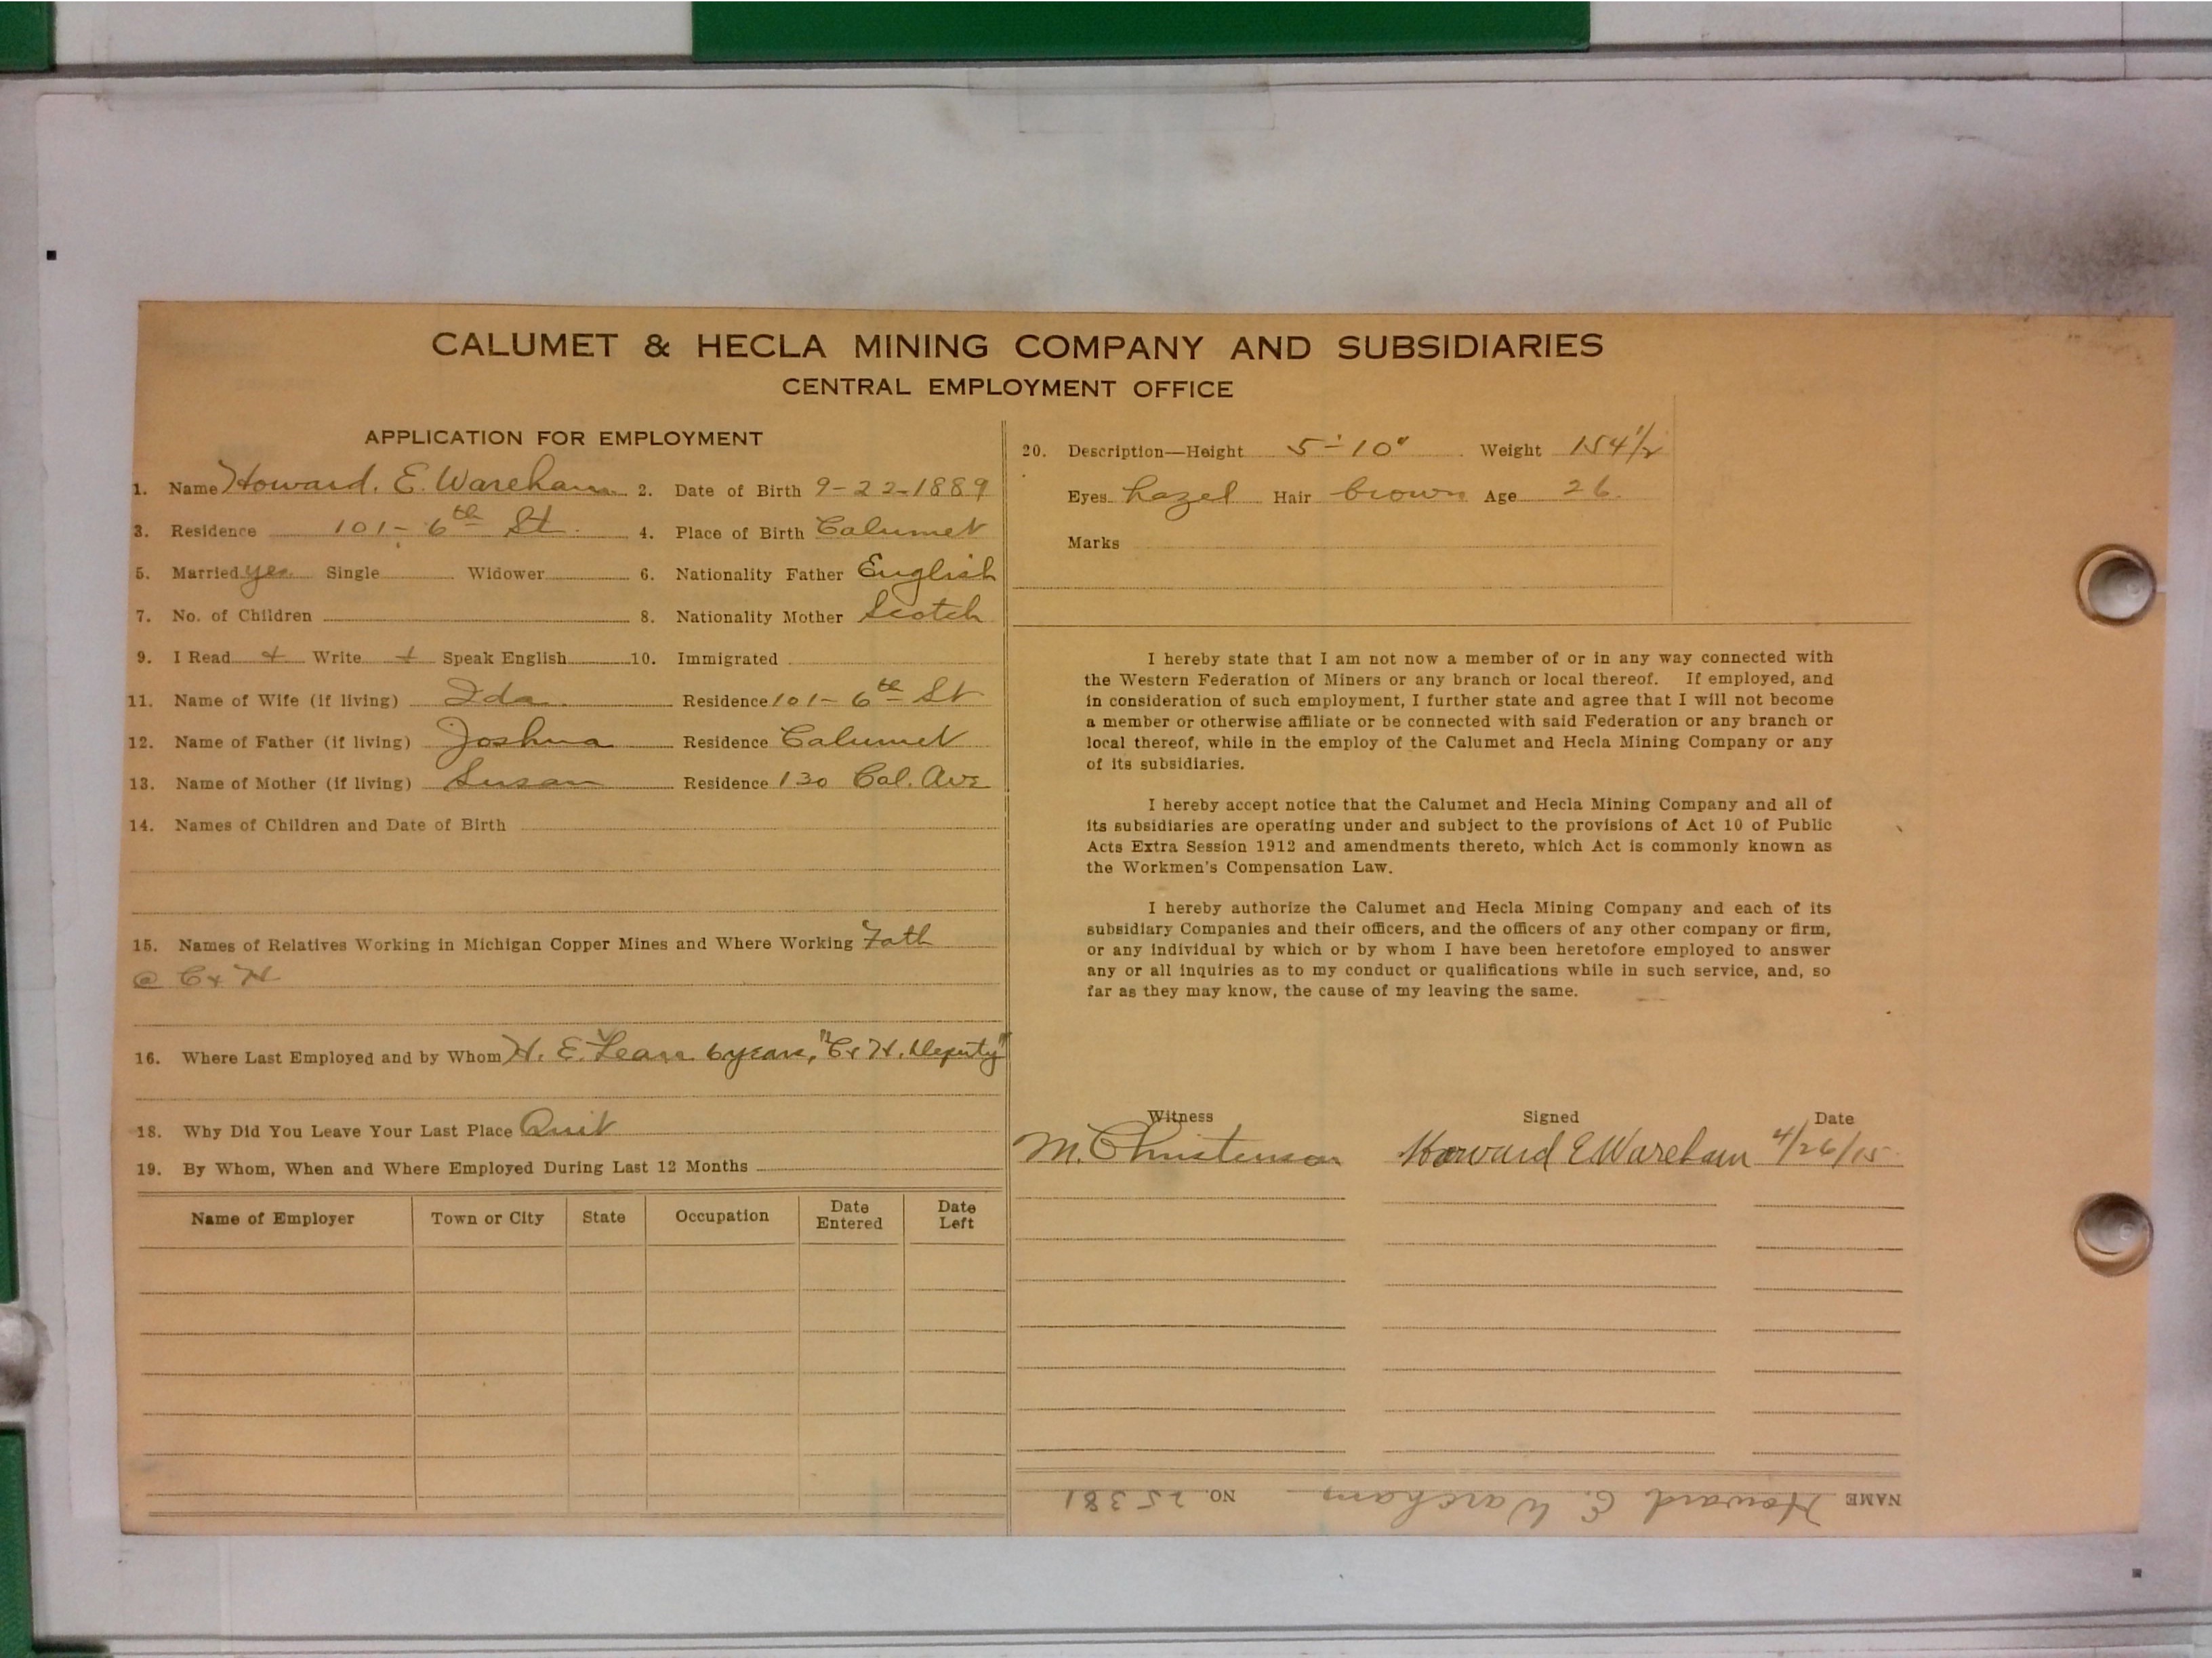 CALUMET & HECLA MINING COMPANY AND SUBSIDIARIES
CENTRAL EMPLOYMENT OFFICE
APPLICATION FOR EMPLOYMENT
1. Name Howard. E. Wareham 2. Date of Birth 9-22-1889
3. Residence 101- 6th St. 4. Place of Birth Calumet
5. Married yes Single Widower 6. Nationality Father English
7. No. of Children 8. Nationality Mother Scotch
9. I Read + Write + Speak English 10. Immigrated
11. Name of Wife (if living) Ida. Residence 101- 6th St
12. Name of Father (if living) Joshua Residence Calumet
13. Name of Mother (if living) Susan Residence 130 Cal. Ave
14. Names of Children and Date of Birth
15. Names of Relatives Working in Michigan Copper Mines and Where Working Fath
@ C & H
16. Where Last Employed and by Whom H. E. 6 years, "C & H. Deputy"
18. Why Did You Leave Your Last Place Quit
19. By Whom, When and Where Employed During Last 12 Months
Name of Employer Town or City State Occupation Date Entered Date Left
20. Description—Height 5'-10" Weight 154 1/2
Eyes hazel Hair brown Age 26.
Marks
I hereby state that I am not now a member of or in any way connected with
the Western Federation of Miners or any branch or local thereof. If employed, and
in consideration of such employment, I further state and agree that I will not become
a member or otherwise affiliate or be connected with said Federation or any branch or
local thereof, while in the employ of the Calumet and Hecla Mining Company or any
of its subsidiaries.
I hereby accept notice that the Calumet and Hecla Mining Company and all of
its subsidiaries are operating under and subject to the provisions of Act 10 of Public
Acts Extra Session 1912 and amendments thereto, which Act is commonly known as
the Workmen's Compensation Law.
I hereby authorize the Calumet and Hecla Mining Company and each of its
subsidiary Companies and their officers, and the officers of any other company or firm,
or any individual by which or by whom I have been heretofore employed to answer
any or all inquiries as to my conduct or qualifications while in such service, and, so
far as they may know, the cause of my leaving the same.
Witness Signed Date
M. Christenson Howard E Wareham 4/26/15
NAME Howard E. Wareham NO. 25381